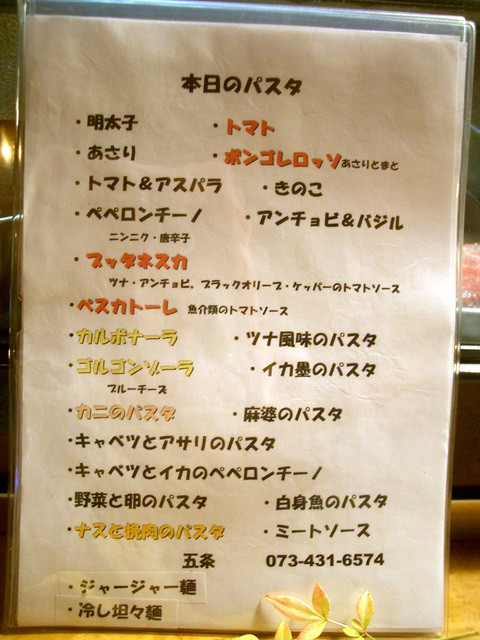 本日のパスタ
・明太子 ・トマト
・あさり ・ボンゴレロッソ あさりとまと
・トマト＆アスパラ ・きのこ
・ペペロンチーノ ・アンチョビ＆バジル
ニンニク・唐辛子
・プッタネスカ
ツナ・アンチョビ。ブラックオリーブ・ケッパーのトマトソース
・ペスカトーレ 魚介類のトマトソース
・カルボナーラ ・ツナ風味のパスタ
・ゴルゴンゾーラ ・イカ墨のパスタ
ブルーチーズ
・カニのパスタ ・麻婆のパスタ
・キャベツとアサリのパスタ
・キャベツとイカのペペロンチーノ
・野菜と卵のパスタ ・白身魚のパスタ
・ナスと挽肉のパスタ ・ミートソース
五条 073-431-6574
・ジャージャー麺
・冷し坦々麺